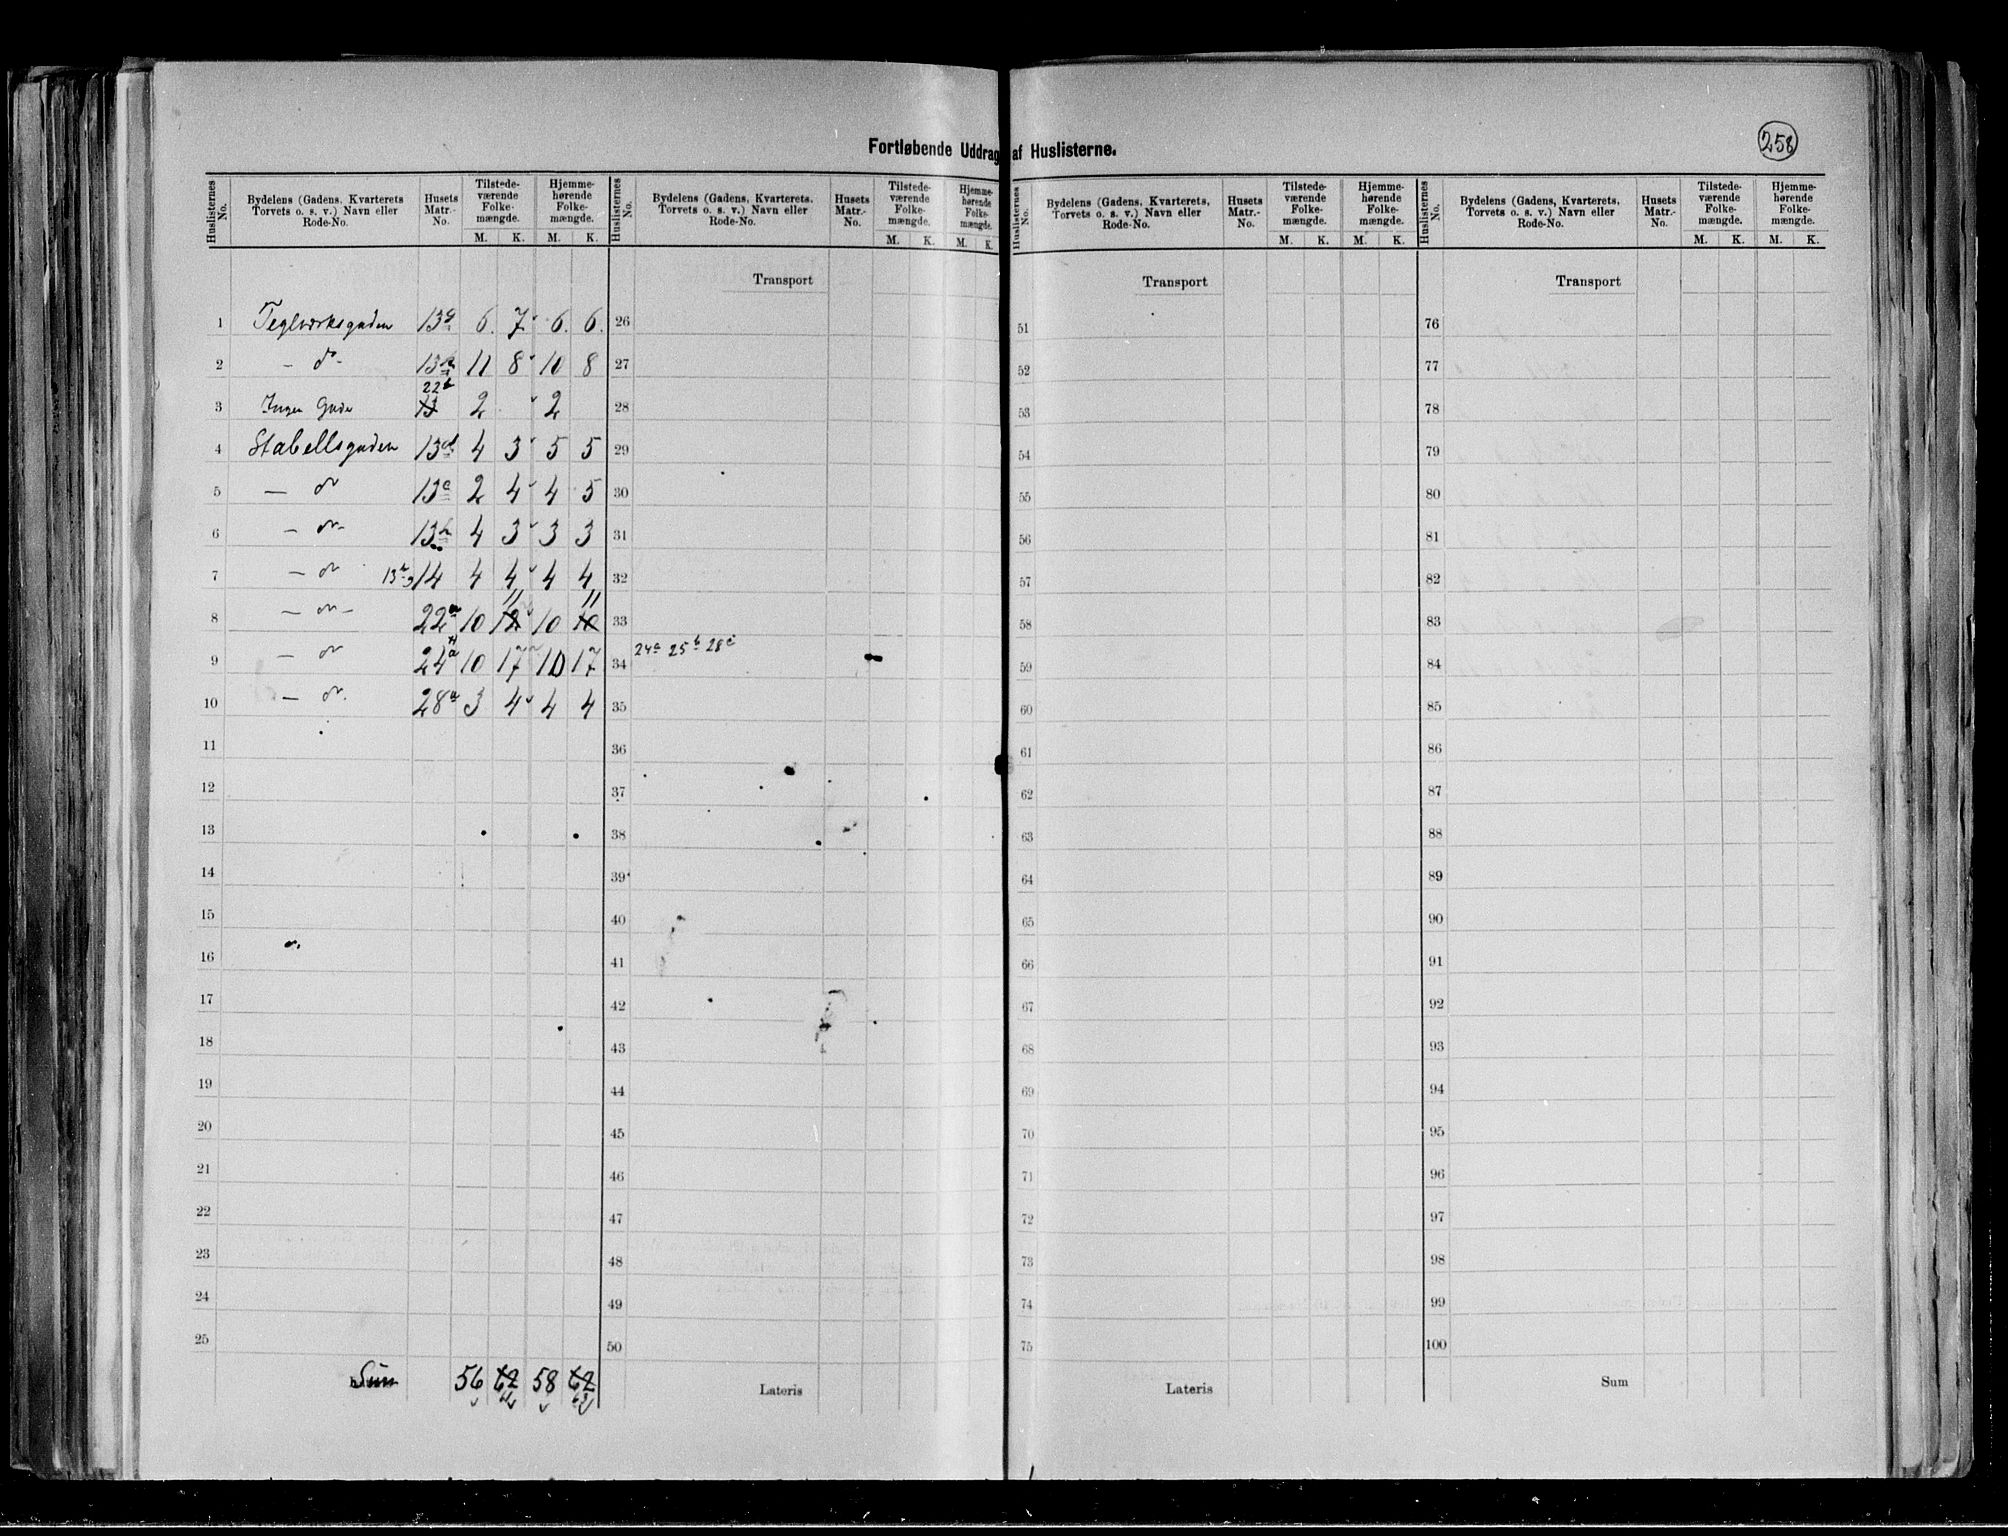 258
Fortløbende Uddrag af Huslisterne.
Huslisternes No. Bydelens (Gadens, Kvarterets Torvets o. s. v.) Navn eller Rode-No. Husets Matr.-No. Tilstedeværende Folkemængde. M. K. Hjemmehørende Folkemængde. M. K.
Huslisternes No. Bydelens (Gadens, Kvarterets, Torvets o. s. v.) Navn eller Rode-No. Husets Matr.-No. Tilstedeværende Folkemængde. M. K. Hjemmehørende Folkemængde. M. K.
Huslisternes No. Bydelens (Gadens, Kvarterets, Torvets o. s. v.) Navn eller Rode-No. Husets Matr.-No. Tilstedeværende Folkemængde. M. K. Hjemmehørende Folkemængde. M. K.
Huslisternes No. Bydelens (Gadens, Kvarterets, Torvets o. s. v.) Navn eller Rode-No. Husets Matr.-No. Tilstedeværende Folkemængde. M. K. Hjemmehørende Folkemængde. M. K.
Transport Transport Transport
1 Teglværksgaden 13g 6. 7 6. 6. 26 51 76
2 - do - 13 11 8 10 8 27 52 77
22b
3 Ingen Gade 13 2 2 28 53 78
4 Stabellsgaden 13d 4 3 5 5 29 54 79
5 — do 13e 2 4 4 5 30 55 80
6 - do - 13 4 3 3 3 31 56 81
7 - do 14 4 4 4 4 32 57 82
11 11
8 - do - 22a 10 12 10 10 33 58 83
9 - do 24a 10 17 10 17 34 24a 25b 28c 59 84
10 - do. 28a 3 4 4 4 35 60 85
11 36 61 86
12 37 62 87
13 38 63 88
14 39 64 89
15 40 65 90
16 41 66 91
17 42 67 92
18 43 68 93
19 44 69 94
20 45 70 95
21 46 71 96
22 47 72 97
23 48 73 98
24 49 74 99
25 50 75 100
Sum 56 62 58 62 Lateris Lateris Sum
63